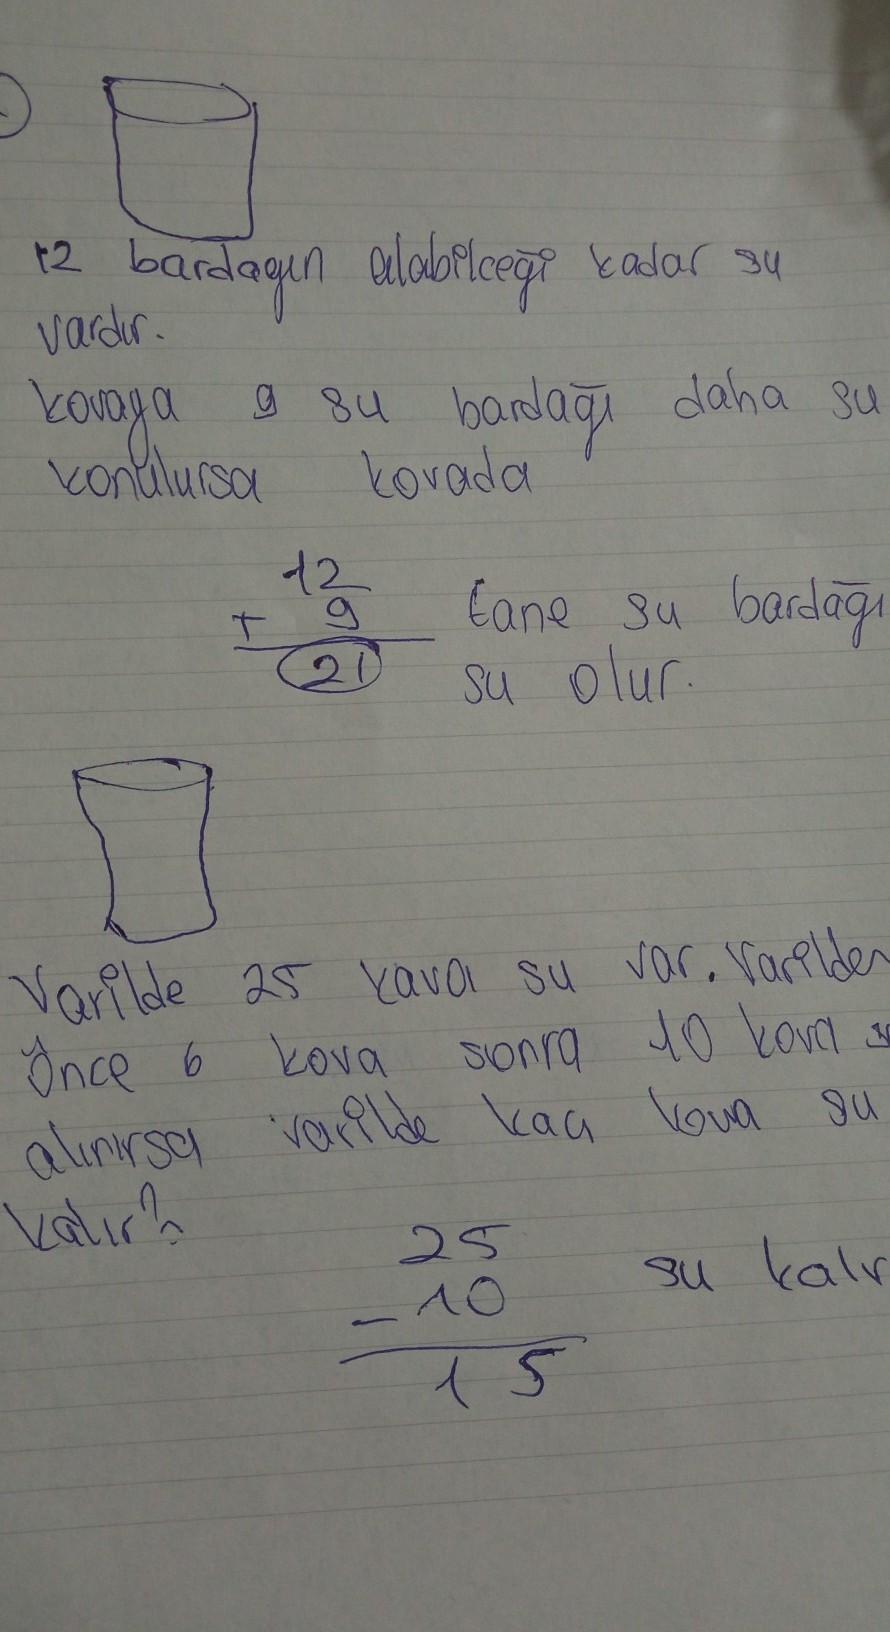 12 bardagın alabilceği kadar su
vardır.
kovaya 9 su bardağı daha su
konulursa kovada
12
+ 9 tane su bardağı
21 su olur.
Varilde 25 kava su var. Varilden
Önce 6 kova sonra 10 kova
alınırsa varilde kaç kova su
kalır?
25
- 10 su kalır
15